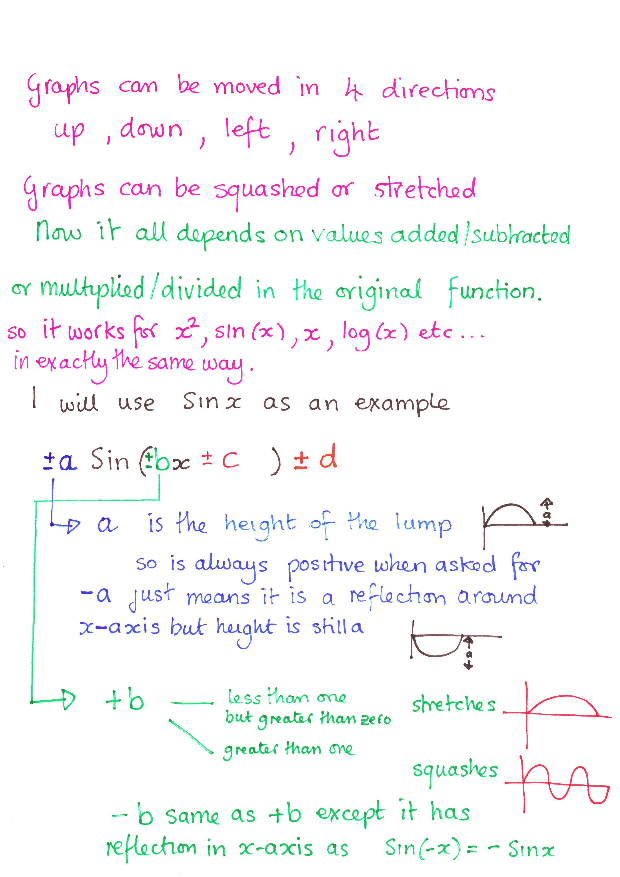 Graphs can be moved in 4 directions
up, down, left, right
Graphs can be squashed or stretched
Now it all depends on values added/subtracted
or multiplied/divided in the original function.
so it works for x², sin(x), x, log(x) etc...
in exactly the same way.
I will use Sinx as an example
±a Sin(±bx ± c ) ± d
a is the height of the lump
a
so is always positive when asked for
-a just means it is a reflection around
x-axis but height is still a
a
+b
less than one
but greater than zero
stretches
greater than one
squashes
- b same as +b except it has
reflection in x-axis as Sin(-x) = - Sinx